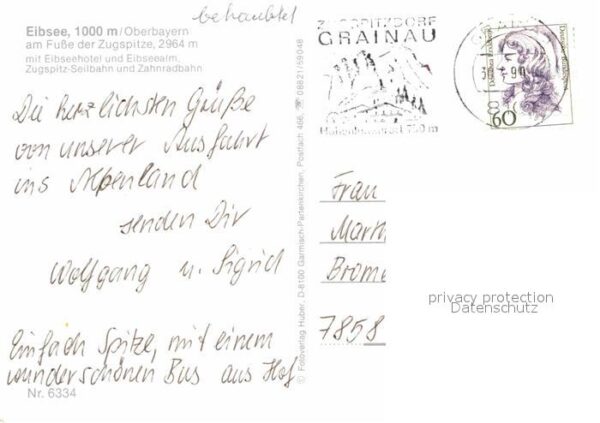 behaubtet
Eibsee, 1000 m/Oberbayern
am Fuße der Zugspitze, 2964 m
mit Eibseehotel und Eibseealm,
Zugspitz-Seilbahn und Zahnradbahn
Die herzlichsten Grüße
von unserer Ausfahrt
ins Alpenland
senden Dir
Wolfgang u. Sigrid
Einfach Spitze, mit einem
wunderschönen Bus aus Hof.
Nr. 6334
© Fotoverlag Huber, D-8100 Garmisch-Partenkirchen, Postfach 466, ☎ 08821/59048
ZUGSPITZDORF
GRAINAU
750 m
Deutsche Bundespost
60
Frau
Marth
Brome
7858
privacy protection
Datenschutz